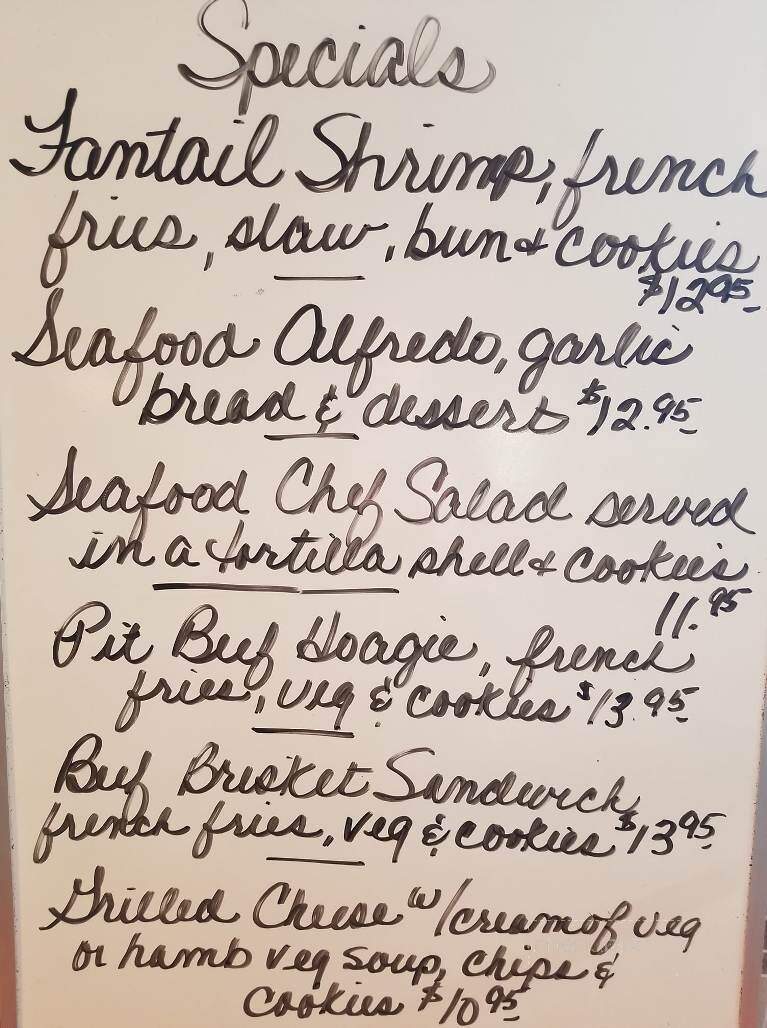 Specials
Fantail Shrimp, french
fries, slaw, bun & cookies
$12.95
Seafood Alfredo, garlic
bread & dessert $12.95
Seafood Chef Salad served
in a tortilla shell & cookies
11.95
Pit Beef Hoagie, french
fries, veg & cookies $13.95
Beef Brisket Sandwich,
french fries, veg & cookies $13.95
Grilled Cheese w/cream of veg
or hamb veg soup, chips &
cookies $10.95